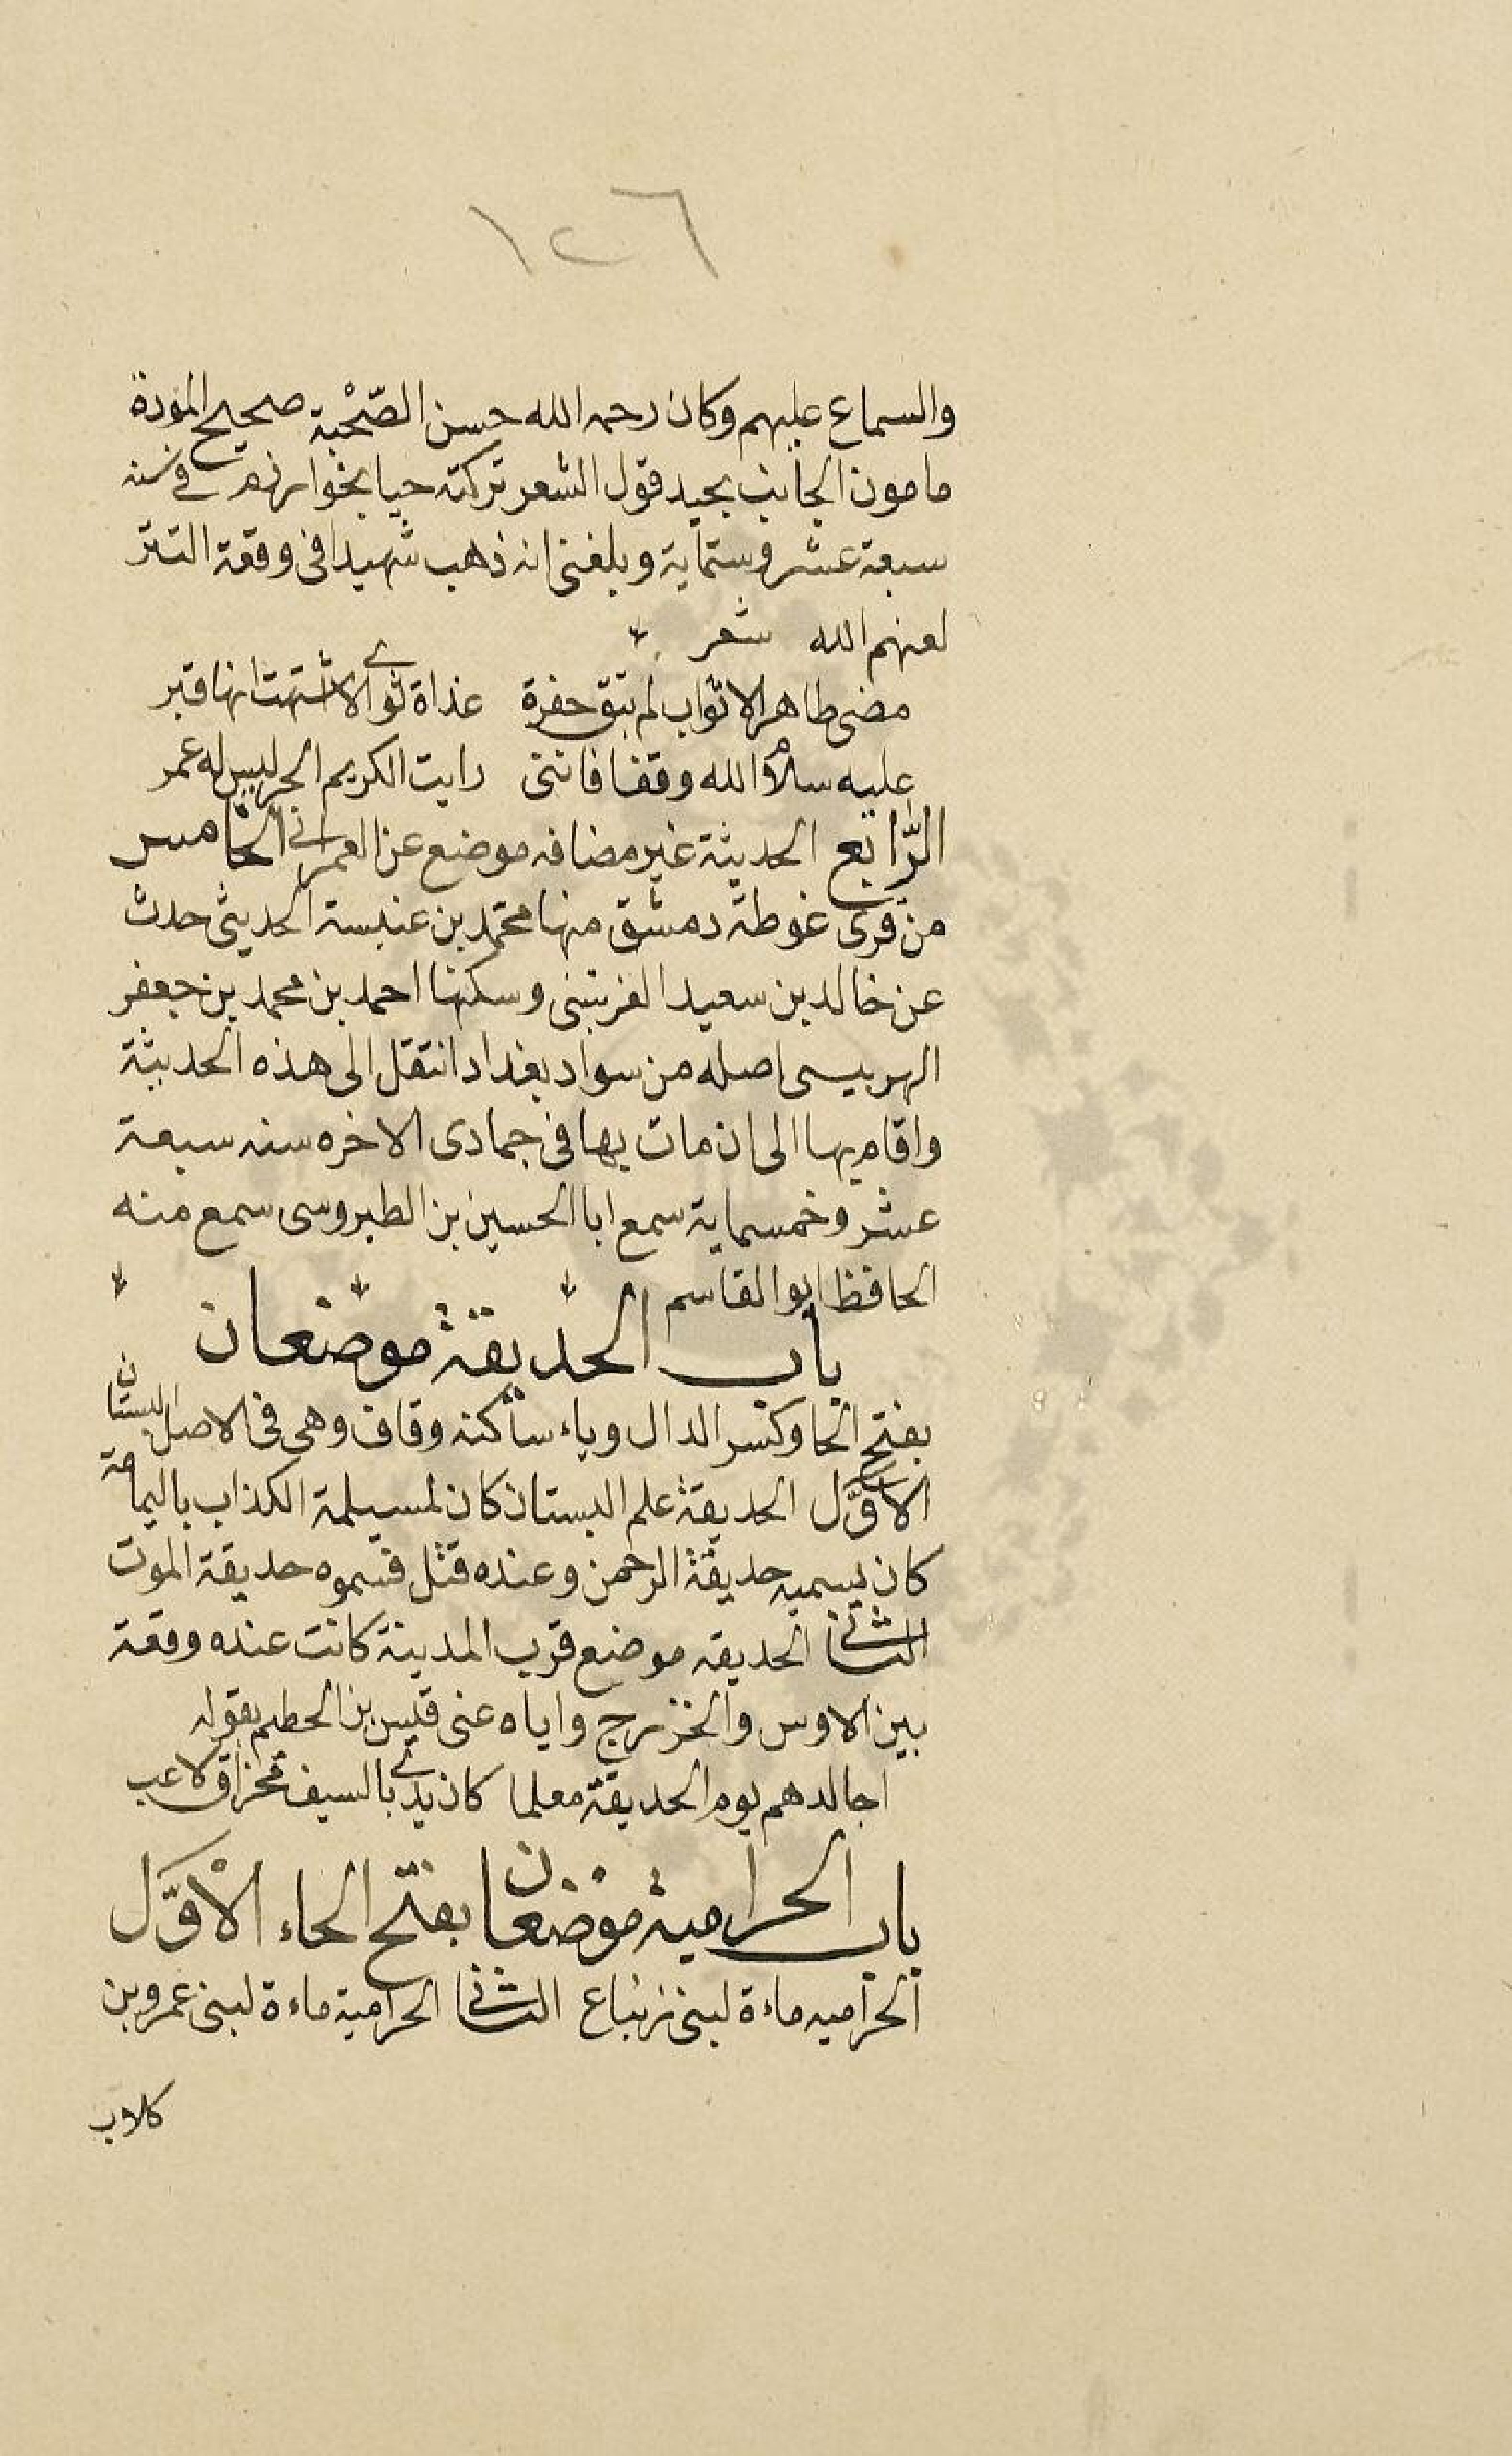 ١٢٦
والسماع عليهم وكان رحمه الله حسن الصّحْبة صحيح المودة
مامون الجانب يجيد قول الشعر تركته حيا بخوارزم في سنه
سبعة عشر وستماية وبلغنى انه ذهب شهيدا فى وقعة التتر
لعنهم الله شعر
مضى طاهر الاثواب لم تبق حفرة غداة ثوى الا اشتهت انها قبر
عليه سلام الله وقفا فاننى رايت الكريم الحر ليس له عمر
الرّابع الحديثة غير مضافه موضع عن العمرانى الخامس
من قرى غوطة دمشق منها محمّد بن عنبسة الحديثى حدث
عن خالد بن سعيد العزيتنى وسكنها احمد بن محمد بن جعفر
الهريسى اصله من سواد بغداد انتقل الى هذه الحديثة
واقام بها الى ان مات بها فى جمادى الاخره سنه سبعة
عشر وخمسماية سمع ابا الحسين بن الطيروسى سمع منه
الحافظ ابو القاسم
باب الحديقة موضعان
بفتح الحا وكسر الدال وياء ساكنه وقاف وهى فى الاصل البستان
الاوّل الحديقة علم البستان كان لمسيلمة الكذاب باليمامة
كان يسميه حديقة الرحمن وعنده قتل فسموه حديقة الموت
الثانى الحديقه موضع قرب المدينة كانت عنده وقعة
بين الاوس والخزرج واياه عنى قيس بن الحطيم بقوله
اجالدهم يوم الحديقة معلما كان يدى بالسيف مخراق لاعب
باب الحرامية موضعان بفتح الحاء الاوّل
الحراميه ماءة لبنى زنباع الثانى الحرامية ماءة لبنى عمرو بن
كلاب